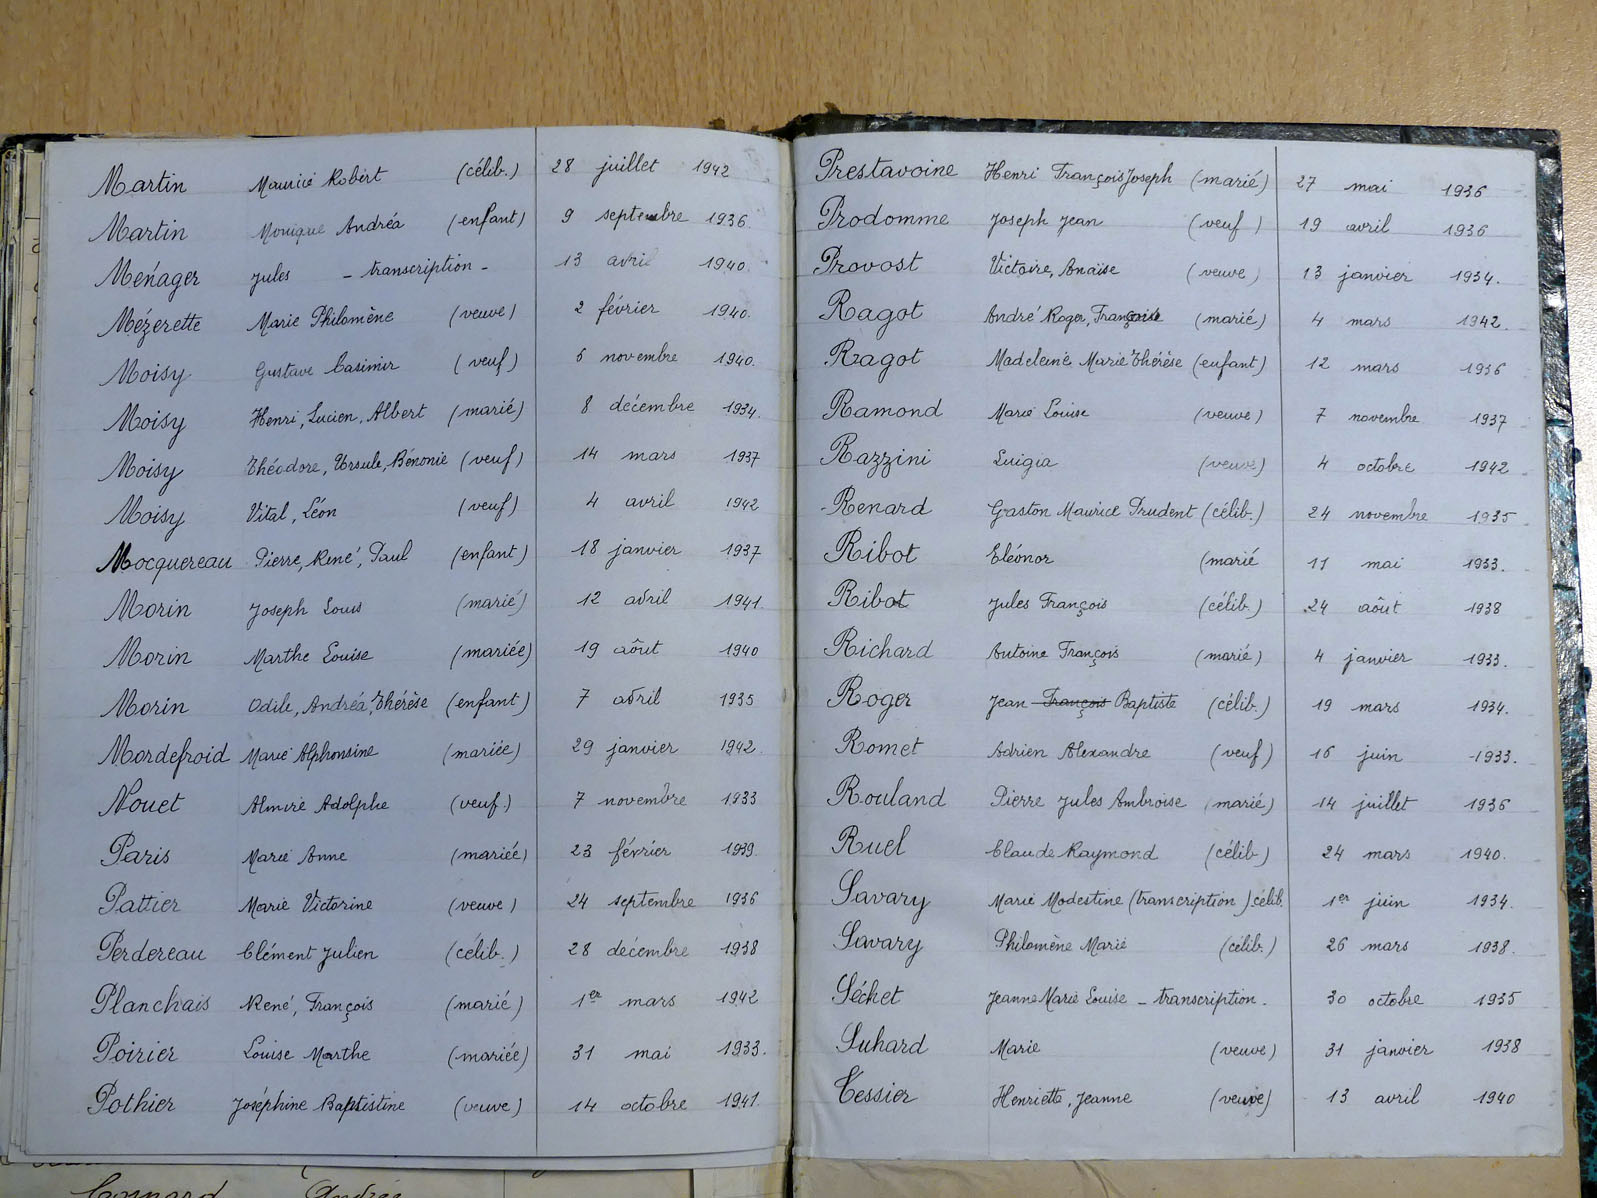 Martin Maurice Robert (célib.) 28 juillet 1942
Martin Monique Andréa (enfant) 9 septembre 1936.
Ménager Jules - transcription - 13 avril 1940.
Mézerette Marie Philomène (veuve) 2 février 1940.
Moisy Gustave Casimir (veuf) 6 novembre 1940.
Moisy Henri, Lucien, Albert (marié) 8 décembre 1934.
Moisy Théodore, Ursule, Bénonie (veuf) 14 mars 1937
Moisy Vital, Léon (veuf) 4 avril 1942
Mocquereau Pierre, René, Paul (enfant) 18 janvier 1937
Morin Joseph Louis (marié) 12 avril 1941.
Morin Marthe Louise (mariée) 19 aôut 1940
Morin Odile, Andréa, Thérèse (enfant) 7 avril 1935
Mordefroid Marie Alphonsine (mariée) 29 janvier 1942.
Nouet Almire Adolphe (veuf.) 7 novembre 1933
Paris Marie Anne (mariée) 23 février 1939.
Pattier Marie Victorine (veuve) 24 septembre 1936
Perdereau Clément Julien (célib.) 28 décembre 1938
Planchais René, François (marié) 1er mars 1942
Poirier Louise Marthe (mariée) 31 mai 1933.
Pothier Joséphine Baptistine (veuve) 14 octobre 1941.
Prestavoine Henri François Joseph (marié) 27 mai 1936
Prodomme Joseph Jean (veuf) 19 avril 1936
Provost Victoire, Anaïse (veuve) 13 janvier 1934.
Ragot André Roger, (marié) 4 mars 1942.
Ragot Madeleine Marie Thérèse (enfant) 12 mars 1936
Ramond Marie Louise (veuve) 7 novembre 1937
Razzini Luigia (veuve) 4 octobre 1942
Renard Gaston Maurice Prudent (célib.) 24 novembre 1935
Ribot Eléonor (marié 11 mai 1933.
Ribot Jules François (célib.) 24 aôut 1938
Richard Antoine François (marié) 4 janvier 1933.
Roger Jean François Baptiste (célib.) 19 mars 1934.
Romet Adrien Alexandre (veuf) 16 juin 1933.
Rouland Pierre Jules Ambroise (marié) 14 juillet 1936
Ruel Claude Raymond (célib.) 24 mars 1940.
Savary Marie Modestine (transcription) célib. 1er juin 1934.
Savary Philomène Marie (célib.) 26 mars 1938.
Séchet Jeanne Marie Louise - transcription - 30 octobre 1935
Suhard Marie (veuve) 31 janvier 1938
Tessier Henriette, Jeanne (veuve) 13 avril 1940